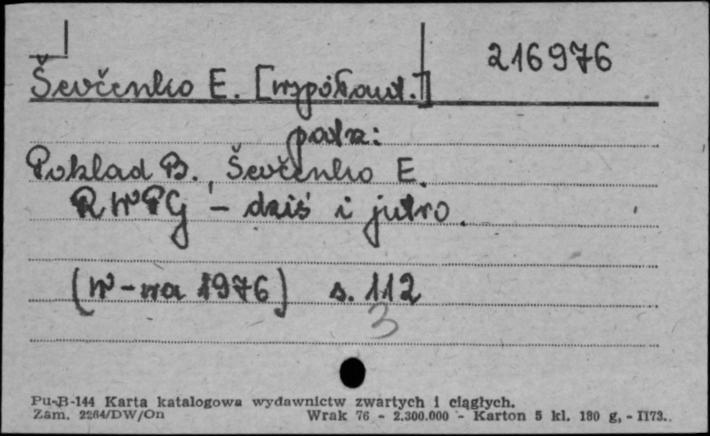 216976
Ševčenko E. [współaut.]
patrz:
Poklad B., Ševčenko E.
RWPG - dziś i jutro.
(W-wa 1976) s. 112
3
Pu-B-144 Karta katalogowa wydawnictw zwartych i ciągłych.
Zam. 2264/DW/On Wrak 76 - 2.300.000 - Karton 5 kl. 180 g, - II73.